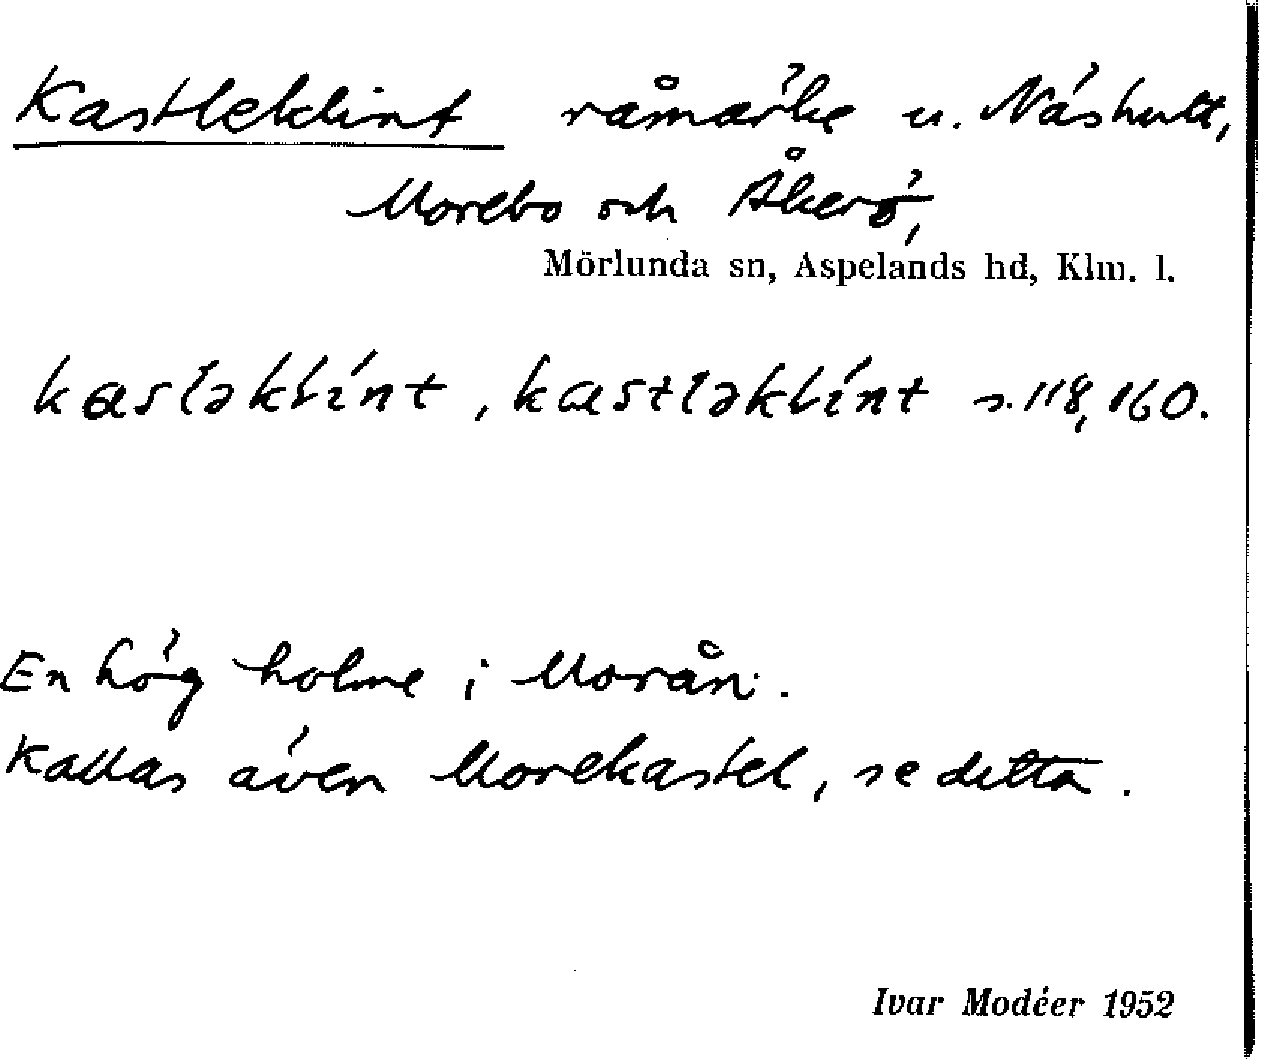 Kastleklint råmärke u. Näshult,
Morebo och Åkerö,
Mörlunda sn, Aspelands hd, Klm. l.
kasləklint, kastləklint s. 118, 160.
En hög holme i Morån.
Kallas även Morekastel, se detta.
Ivar Modéer 1952